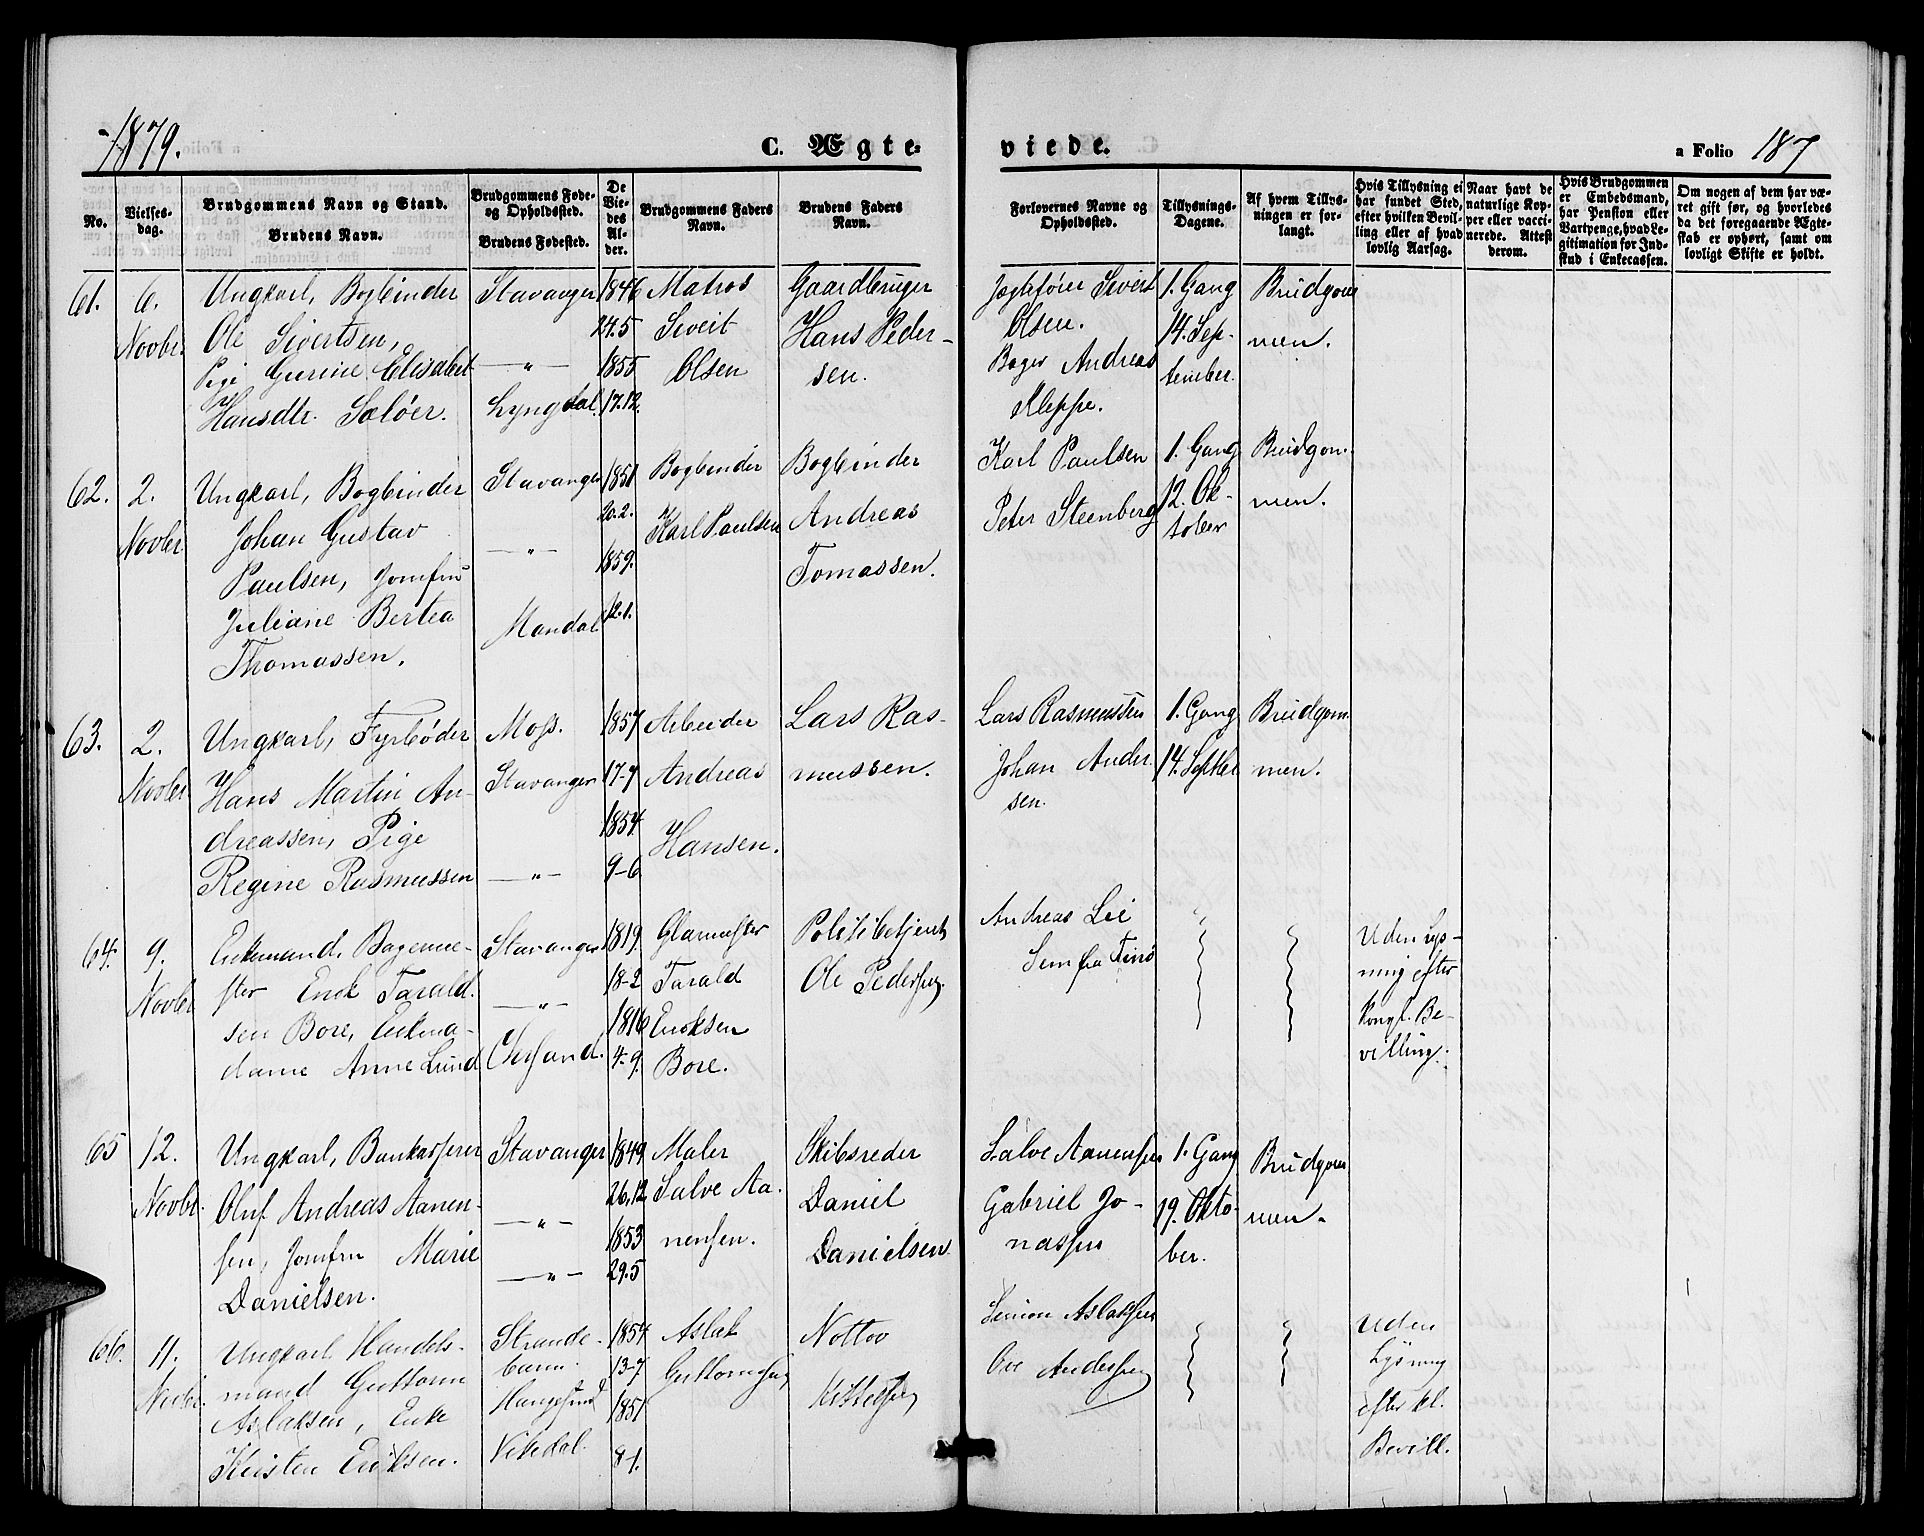 1879.
C. Ægte-
viede.
a Folio 187
No.
Vielses-
dag.
Brudgommens Navn og Stand.
Brudens Navn.
Brudgommens Føde-
og Opholdssted.
Brudens Fødested.
De
Vie-
des
Al-
der.
Brudgommens Faders
Navn.
Brudens Faders
Navn.
Forlovernes Navne og
Opholdssted.
Tillysnings-
Dagene.
Af hvem Tillys-
ningen er for-
langt.
Hvis Tillysning ei
har fundet Sted,
efter hvilken Bevil-
ling eller af hvad
lovlig Aarsag.
Naar havt de
naturlige Kop-
per eller vacci-
nerede. Attest
derom.
Hvis Brudgommen
er Embedsmand,
har Pension eller
Vartpenge, hvad Le-
gitimation for Ind-
skud i Enkecassen.
Om nogen af dem har væ-
ret gift før, og hvorledes
da det foregaaende Ægte-
skab er ophørt, samt om
lovligt Skifte er holdt.
61.
6.
Novbr.
Ungkarl, Bogbinder
Ole Sivertsen,
Pige Gurine Elisabet
Hansdtr. Sæløer.
Stavanger
—"—
Lyngdal.
1846
24.5
1855
17.12.
Matros
Sivert
Olsen
Gaardbruger
Hans Peder-
sen.
Jægtefører Sivert
Olsen.
Bager Andreas
Kleppe.
1. Gang
14. Sep-
tember.
Brudgom
men.
62.
2.
Novbr
Ungkarl, Bogbinder
Johan Gustav
Paulsen, Jomfru
Juliane Bertea
Thomassen.
Stavanger
—"—
Mandal
1851
20.2.
1859.
12.1.
Bogbinder
Karl Paulsen
Bogbinder
Andreas
Tomassen.
Karl Paulsen
Peter Steenberg
1. Gang
12. Ok-
tober
Brudgom-
men.
63.
2.
Novbr
Ungkarl, Fyrbøder
Hans Martin An-
dreassen, Pige
Regine Rasmussen
Moss.
Stavanger
—"—
1857
17-7
1854
9-6
Arbeider
Andreas
Hansen.
Lars Ras-
mussen.
Lars Rasmussen
Johan Ander
sen.
1. Gang
14. Septbr
Brudgom
men.
64.
9.
Novbr
Enkemand, Bagerme-
ster Enok Tarald.
sen Bore, Enkema-
dame Anne Lund
Stavanger
—"—
1819
18-2
1816
4-9.
Glarmester
Tarald
Enoksen
Bore.
Politibetjent
Ole Pedersen.
Andreas Lie
Uden Lys-
ning efter
Kongl. Be-
villing.
65
12.
Novbr.
Ungkarl, Bankasserer
Oluf Andreas Aanen-
sen, Jomfru Marie
Danielsen.
Stavanger
—"—
—"—
1849
26.12
1853
29.5
Maler
Salve Aa-
nensen.
Skibsreder
Daniel
Danielsen
Salve Aanensen
Gabriel Jo-
nassen
1. Gang
19. Okto-
ber.
Brudgom
men.
66.
11.
Novbr.
Ungkarl Handels-
mand Guttorm
Aslaksen, Enke
Kristen Eriksen.
Strande-
barm.
Haugesund
Vikedal.
1854
13-7
1851
8-1.
Aslak
Guttormsen
Nottov
Kittelsen
Simon Aslaksen
Ove Andersen
Uden
Lysning
efter kl.
Bevill.